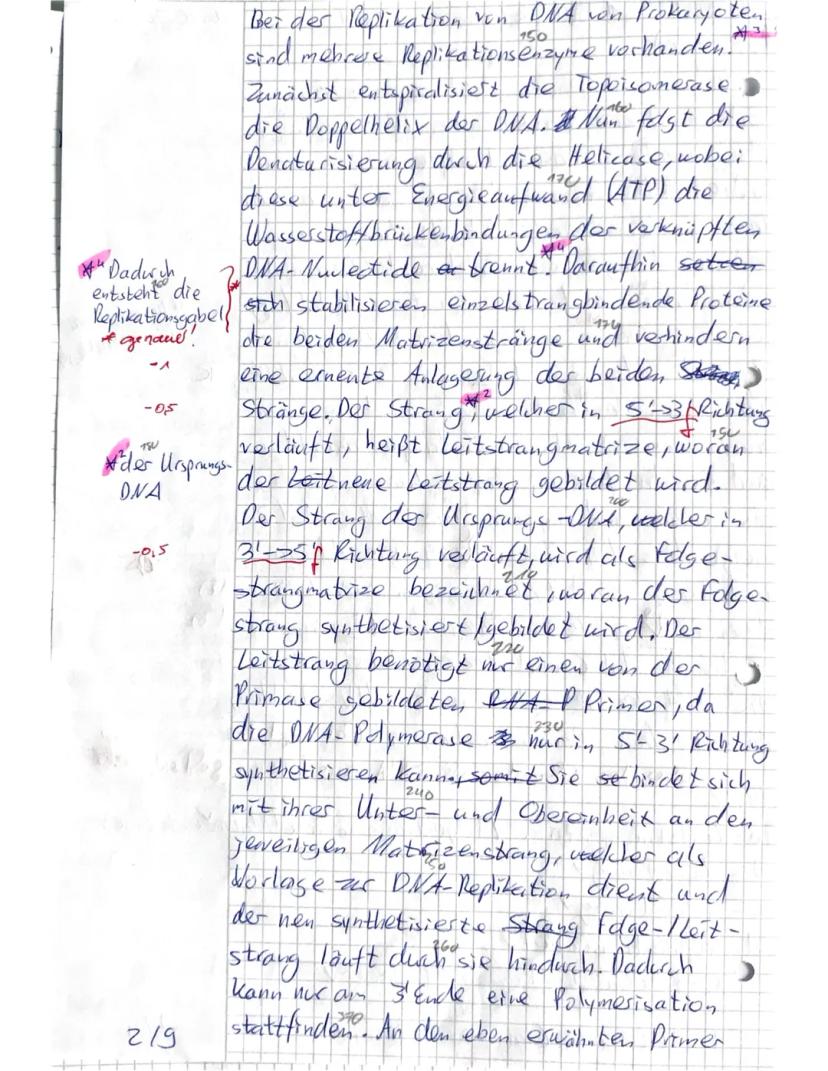 Bei der Replikation von DNA von Prokaryoten
150
*3
sind mehrere Replikationsenzyme vorhanden.
Zunächst entspiralisiert die Topoisomerase
160
die Doppelhelix der DNA. Nun folgt die
Denaturisierung durch die Helicase, wobei
170
diese unter Energieaufwand (ATP) die
Wasserstoffbrückenbindungen der verknüpften
*4
DNA-Nucleotide er trennt. Daraufhin setzen
sich stabilisieren einzelstrangbindende Proteine
*4 Dadurch
entsteht die
Replikationsgabel
* genauer!
-1
die beiden Matrizenstränge und verhindern
eine erneute Anlagerung der beiden
-0,5
*2
Stränge. Der Strang, welcher in 5'->3' Richtung
f
verläuft, heißt Leitstrangmatrize, woran
180
*2 der Ursprungs-
DNA
der Leit neue Leitstrang gebildet wird.
200
Der Strang der Ursprungs-DNA, welcher in
-0,5
3'->5' f Richtung verläuft, wird als Folge-
210
strangmatrize bezeichnet, woran der Folge-
strang synthetisiert/gebildet wird. Der
220
Leitstrang benötigt nur einen von der
Primase gebildeten RNA-P Primer, da
230
die DNA-Polymerase nur in 5'-3' Richtung
synthetisieren kann, somit Sie se bindet sich
240
mit ihrer Unter- und Obereinheit an den
jeweiligen Matrizenstrang, welcher als
250
Vorlage zur DNA-Replikation dient und
der neu synthetisierte Strang Folge-/Leit-
260
strang läuft durch sie hindurch. Dadurch
kann nur am 3'Ende eine Polymerisation
270
stattfinden. An den eben erwähnten Primer
2/9